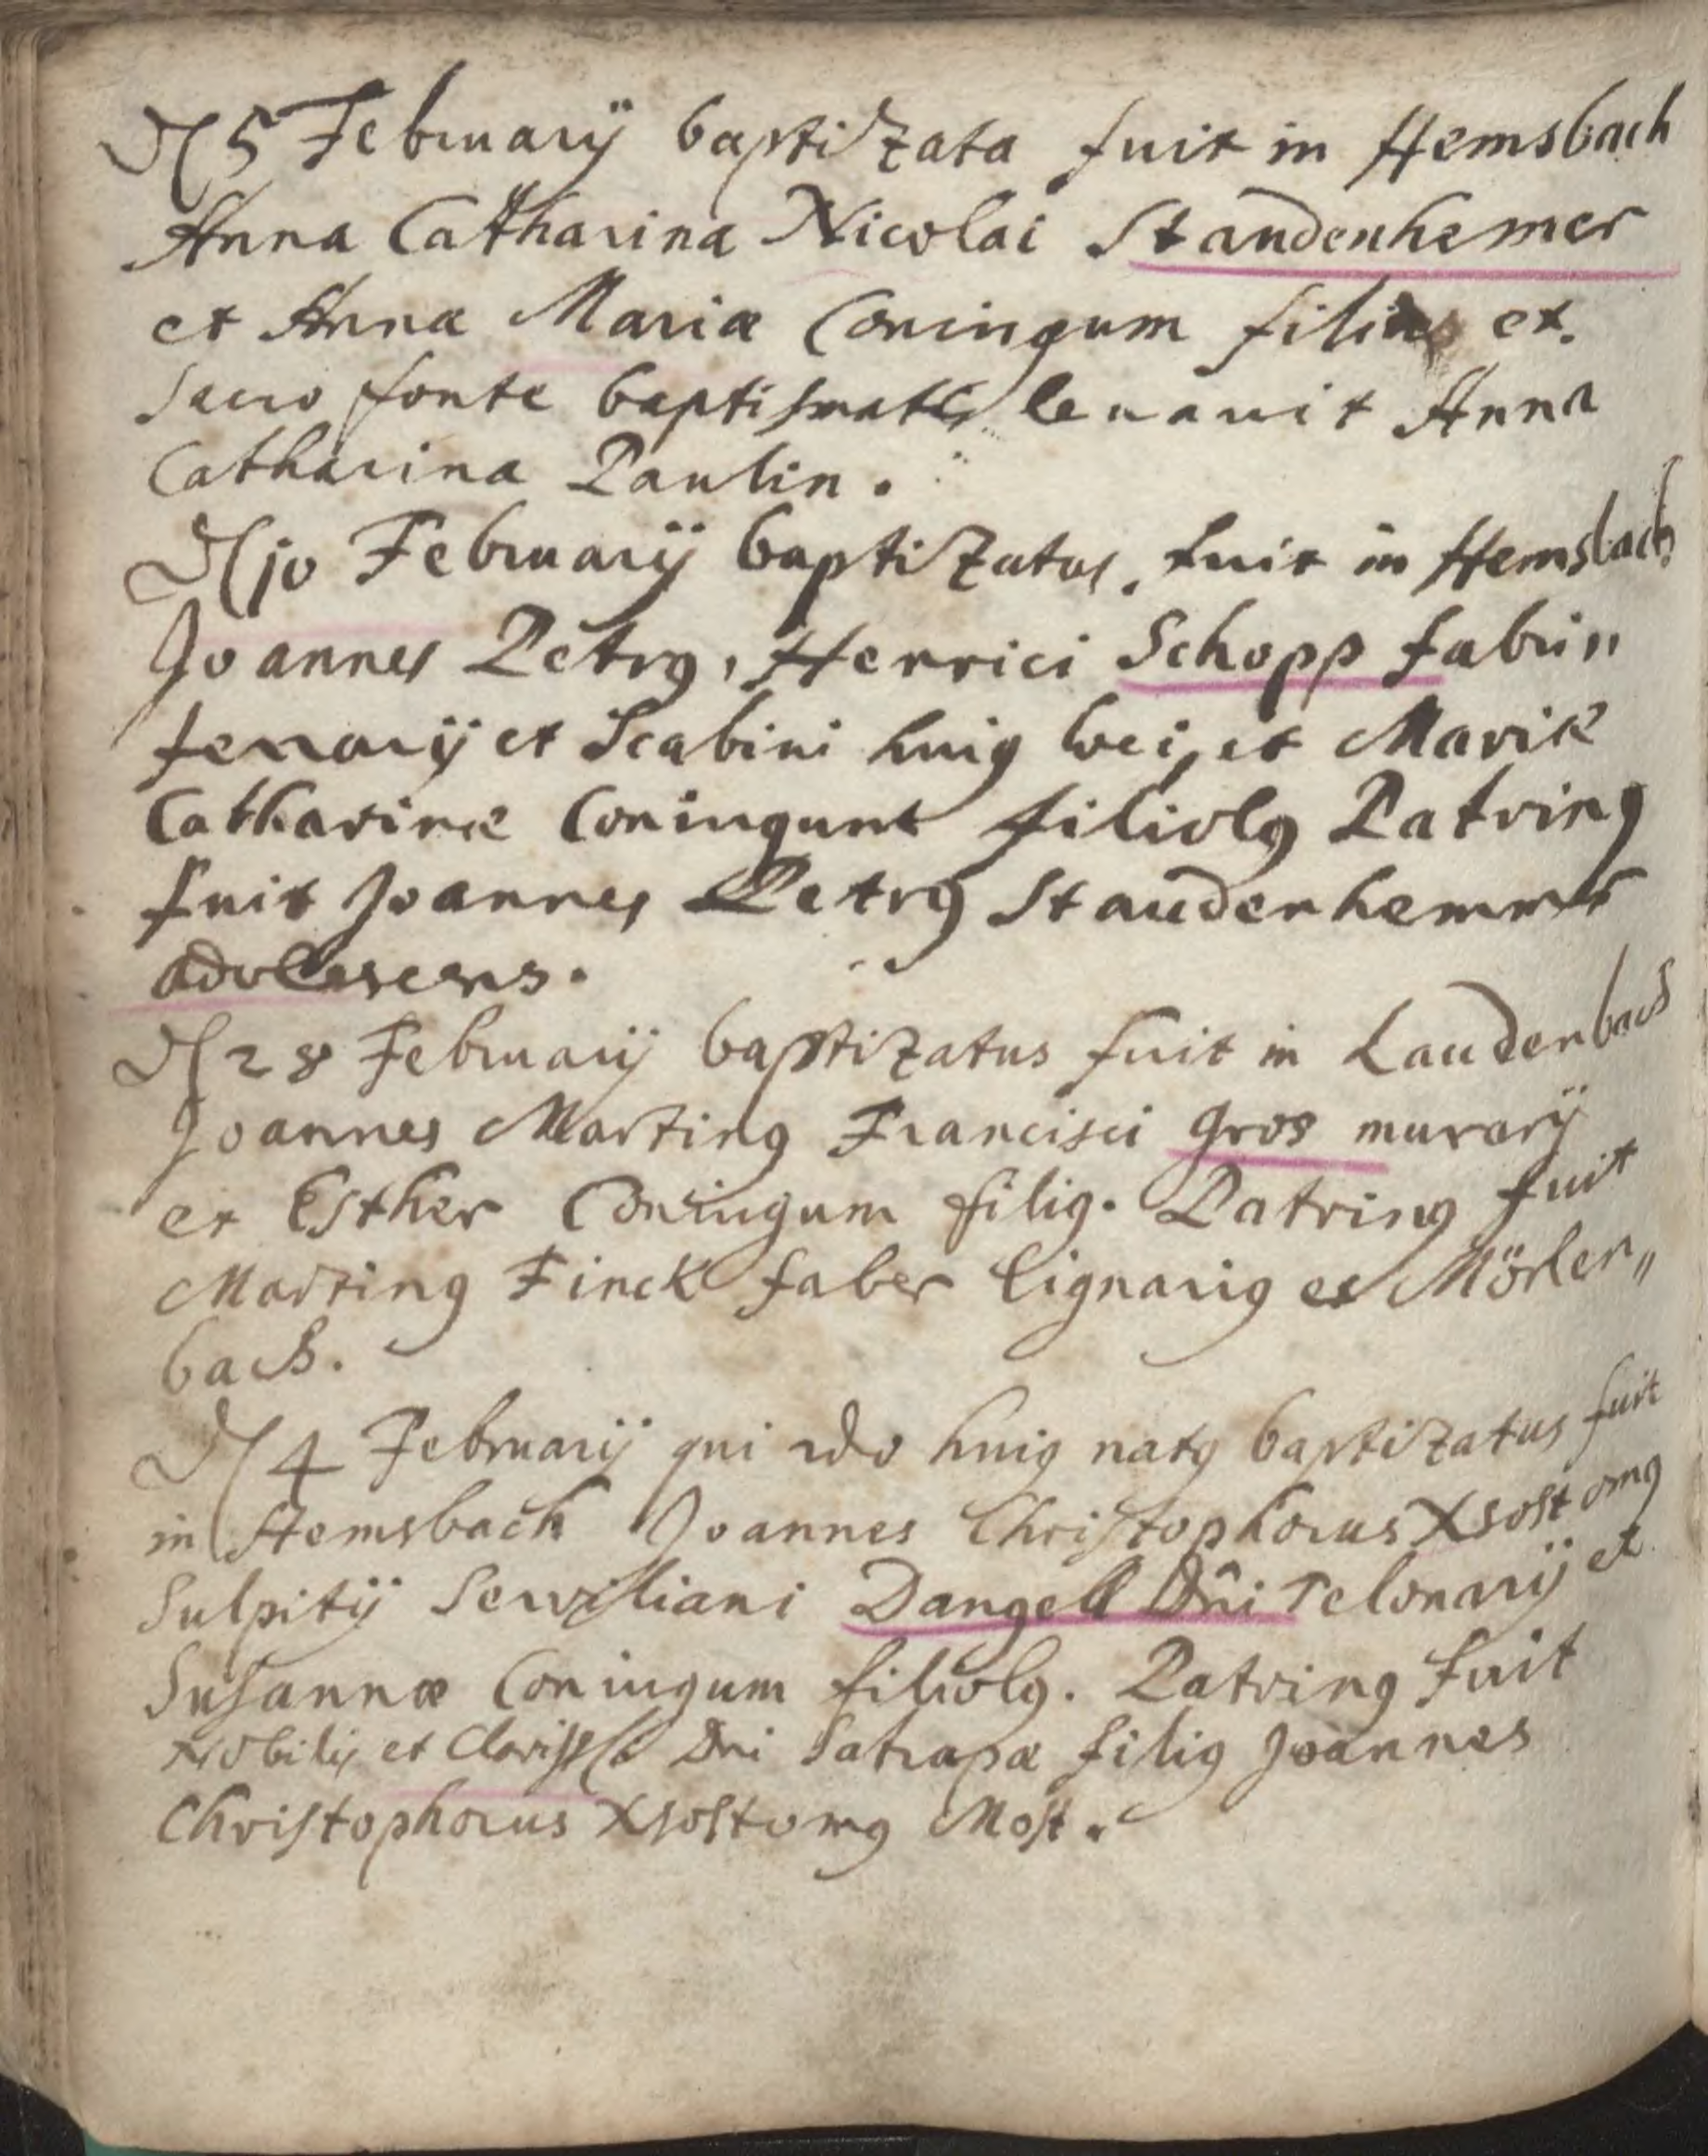 D 5 February baptizata fuit in Hemsbach
Anna Catharina Nicolai Staudenhemer
et Annæ Mariæ Coniugum filia et
sacro fonte baptismatis levavit Anna
Catharina Paulin.
D 10 February baptizatus fuit in Hemsbach
Joannes Petrus, Henrici Schopp fabri
ferrarij et Scabini huius loci, et Mariæ
Catharinæ Coniugum filiolus Patrinus
fuit Joannes Petrus Staudenhemmer
adolescens.
D 28 February baptizatus fuit in Laudenbach
Joannes Martinus Francisci Gros murarij
et Esther Coniugum filius. Patrinus fuit
Martinus Finck faber lignarius ex Mörlen„
bach.
D 4 February qui 2do huius natus baptizatus fuit
in Hemsbach Joannes Christophorus Xsostomus
Sulpitij Serviliani Dangell Dni Telonarij et
Susannæ Coniugum filiolus. Patrinus fuit
Nobilis et Clariss Dni Satrapæ filius Joannes
Christophorus Xsostomus Most.